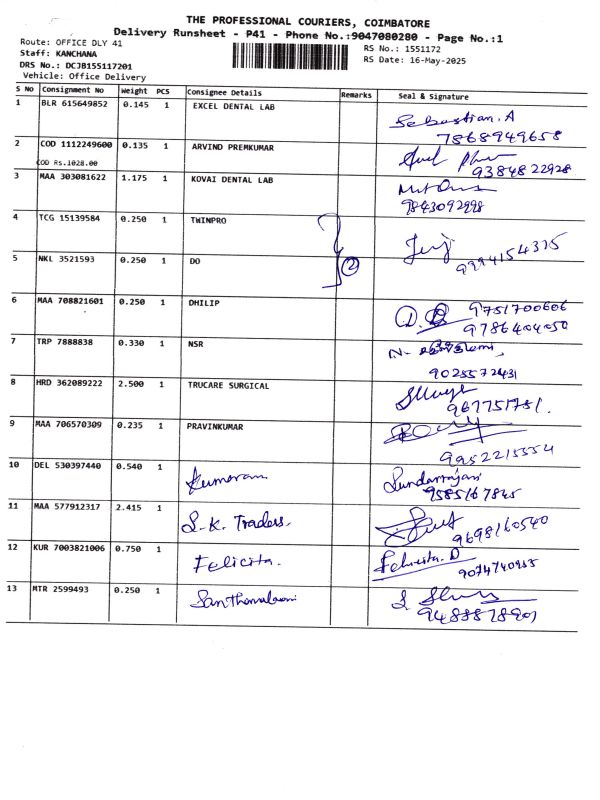 THE PROFESSIONAL COURIERS, COIMBATORE
Delivery Runsheet - P41 - Phone No.:9047080280 - Page No.:1
Route: OFFICE DLY 41
Staff: KANCHANA
DRS No.: DCJB155117201
Vehicle: Office Delivery
RS No.: 1551172
RS Date: 16-May-2025
S No Consignment No Weight PCS Consignee Details Remarks Seal & Signature
1 BLR 615649852 0.145 1 EXCEL DENTAL LAB Sebastian. A
7868949658
2 COD 1112249600 0.135 1 ARVIND PREMKUMAR
COD Rs.1028.00 9384822928
3 MAA 303081622 1.175 1 KOVAI DENTAL LAB
9843092998
4 TCG 15139584 0.250 1 TWINPRO
9994154375
5 NKL 3521593 0.250 1 DO 2
6 MAA 708821601 0.250 1 DHILIP 9751700606
9786404050
7 TRP 7888838 0.330 1 NSR N.
9025572431
8 HRD 362089222 2.500 1 TRUCARE SURGICAL
967751751.
9 MAA 706570309 0.235 1 PRAVINKUMAR
9952215554
10 DEL 530397440 0.540 1 Kumaran Sundarrajan
9585167845
11 MAA 577912317 2.415 1 S.K. Traders.
9698160540
12 KUR 7003821006 0.750 1 Felicita. Felicita. D
13 MTR 2599493 0.250 1